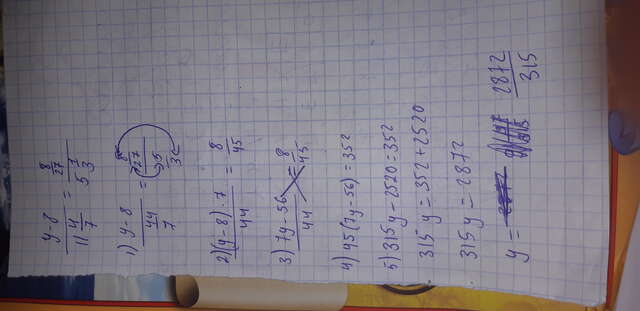 y-8 / 11 4/7 = 8/27 / 5 1/3
1) y-8 / 44/7 = 8/27 / 5/3
2) (y-8)·7 / 44 = 8/45
3) 7y-56 / 44 = 8/45
4) 45(7y-56)=352
5) 315y-2520=352
315y=352+2520
315y=2872
y= 2872/315